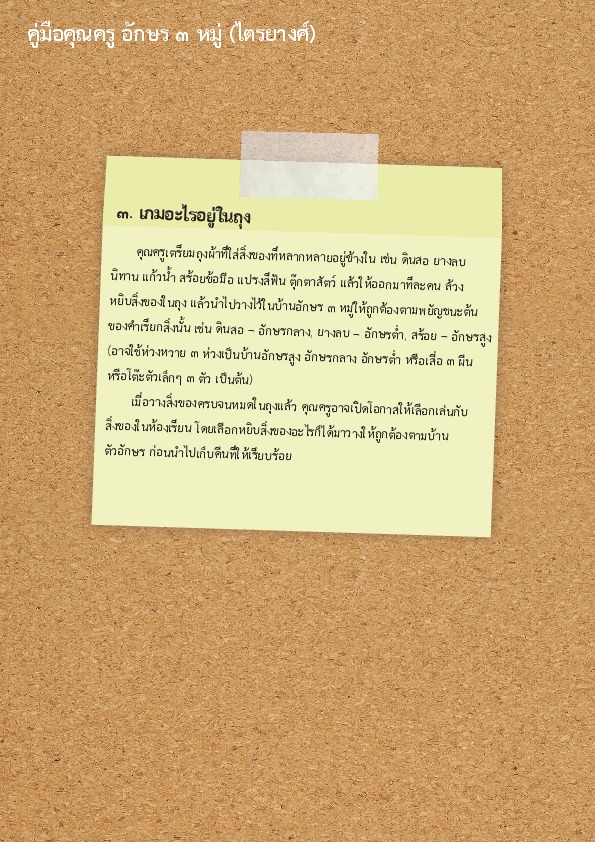 คู่มือคุณครู อักษร ๓ หมู่ (ไตรยางศ์)
๓. เกมอะไรอยู่ในถุง
คุณครูเตรียมถุงผ้าที่ใส่สิ่งของที่หลากหลายอยู่ข้างใน เช่น ดินสอ ยางลบ
นิทาน แก้วน้ำ สร้อยข้อมือ แปรงสีฟัน ตุ๊กตาสัตว์ แล้วให้ออกมาทีละคน ล้วง
หยิบสิ่งของในถุง แล้วนำไปวางไว้ในบ้านอักษร ๓ หมู่ให้ถูกต้องตามพยัญชนะต้น
ของคำเรียกสิ่งนั้น เช่น ดินสอ – อักษรกลาง, ยางลบ – อักษรต่ำ, สร้อย – อักษรสูง
(อาจใช้ห่วงหวาย ๓ ห่วงเป็นบ้านอักษรสูง อักษรกลาง อักษรต่ำ หรือเสื่อ ๓ ผืน
หรือโต๊ะตัวเล็กๆ ๓ ตัว เป็นต้น)
เมื่อวางสิ่งของครบจนหมดในถุงแล้ว คุณครูอาจเปิดโอกาสให้เลือกเล่นกับ
สิ่งของในห้องเรียน โดยเลือกหยิบสิ่งของอะไรก็ได้มาวางให้ถูกต้องตามบ้าน
ตัวอักษร ก่อนนำไปเก็บคืนที่ให้เรียบร้อย